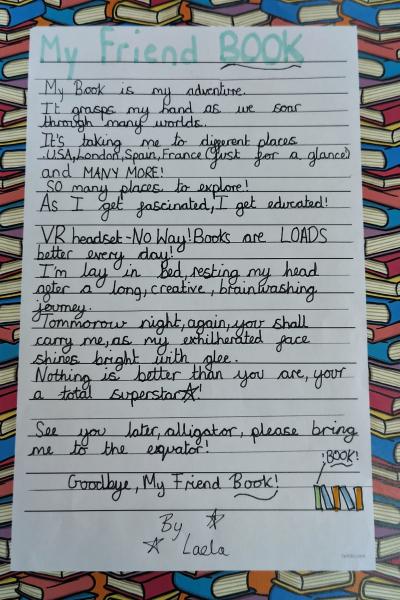 My Friend BOOK
My Book is my adventure.
It grasps my hand as we soar
through many worlds.
It's taking me to different places
USA, London, Spain, France (just for a glance)
and MANY MORE!
SO many places to explore!
As I get fascinated, I get educated!
VR headset-No Way! Books are LOADS
better every day!
I'm lay in bed, resting my head
after a long, creative, brainwashing
journey.
Tommorow night, again, you shall
carry me, as my exhilherated face
shines bright with glee.
Nothing is better than you are, your
a total superstar!
See you later, alligator, please bring
me to the equator!
!BOOK!
Goodbye, My Friend Book!
By
Laela